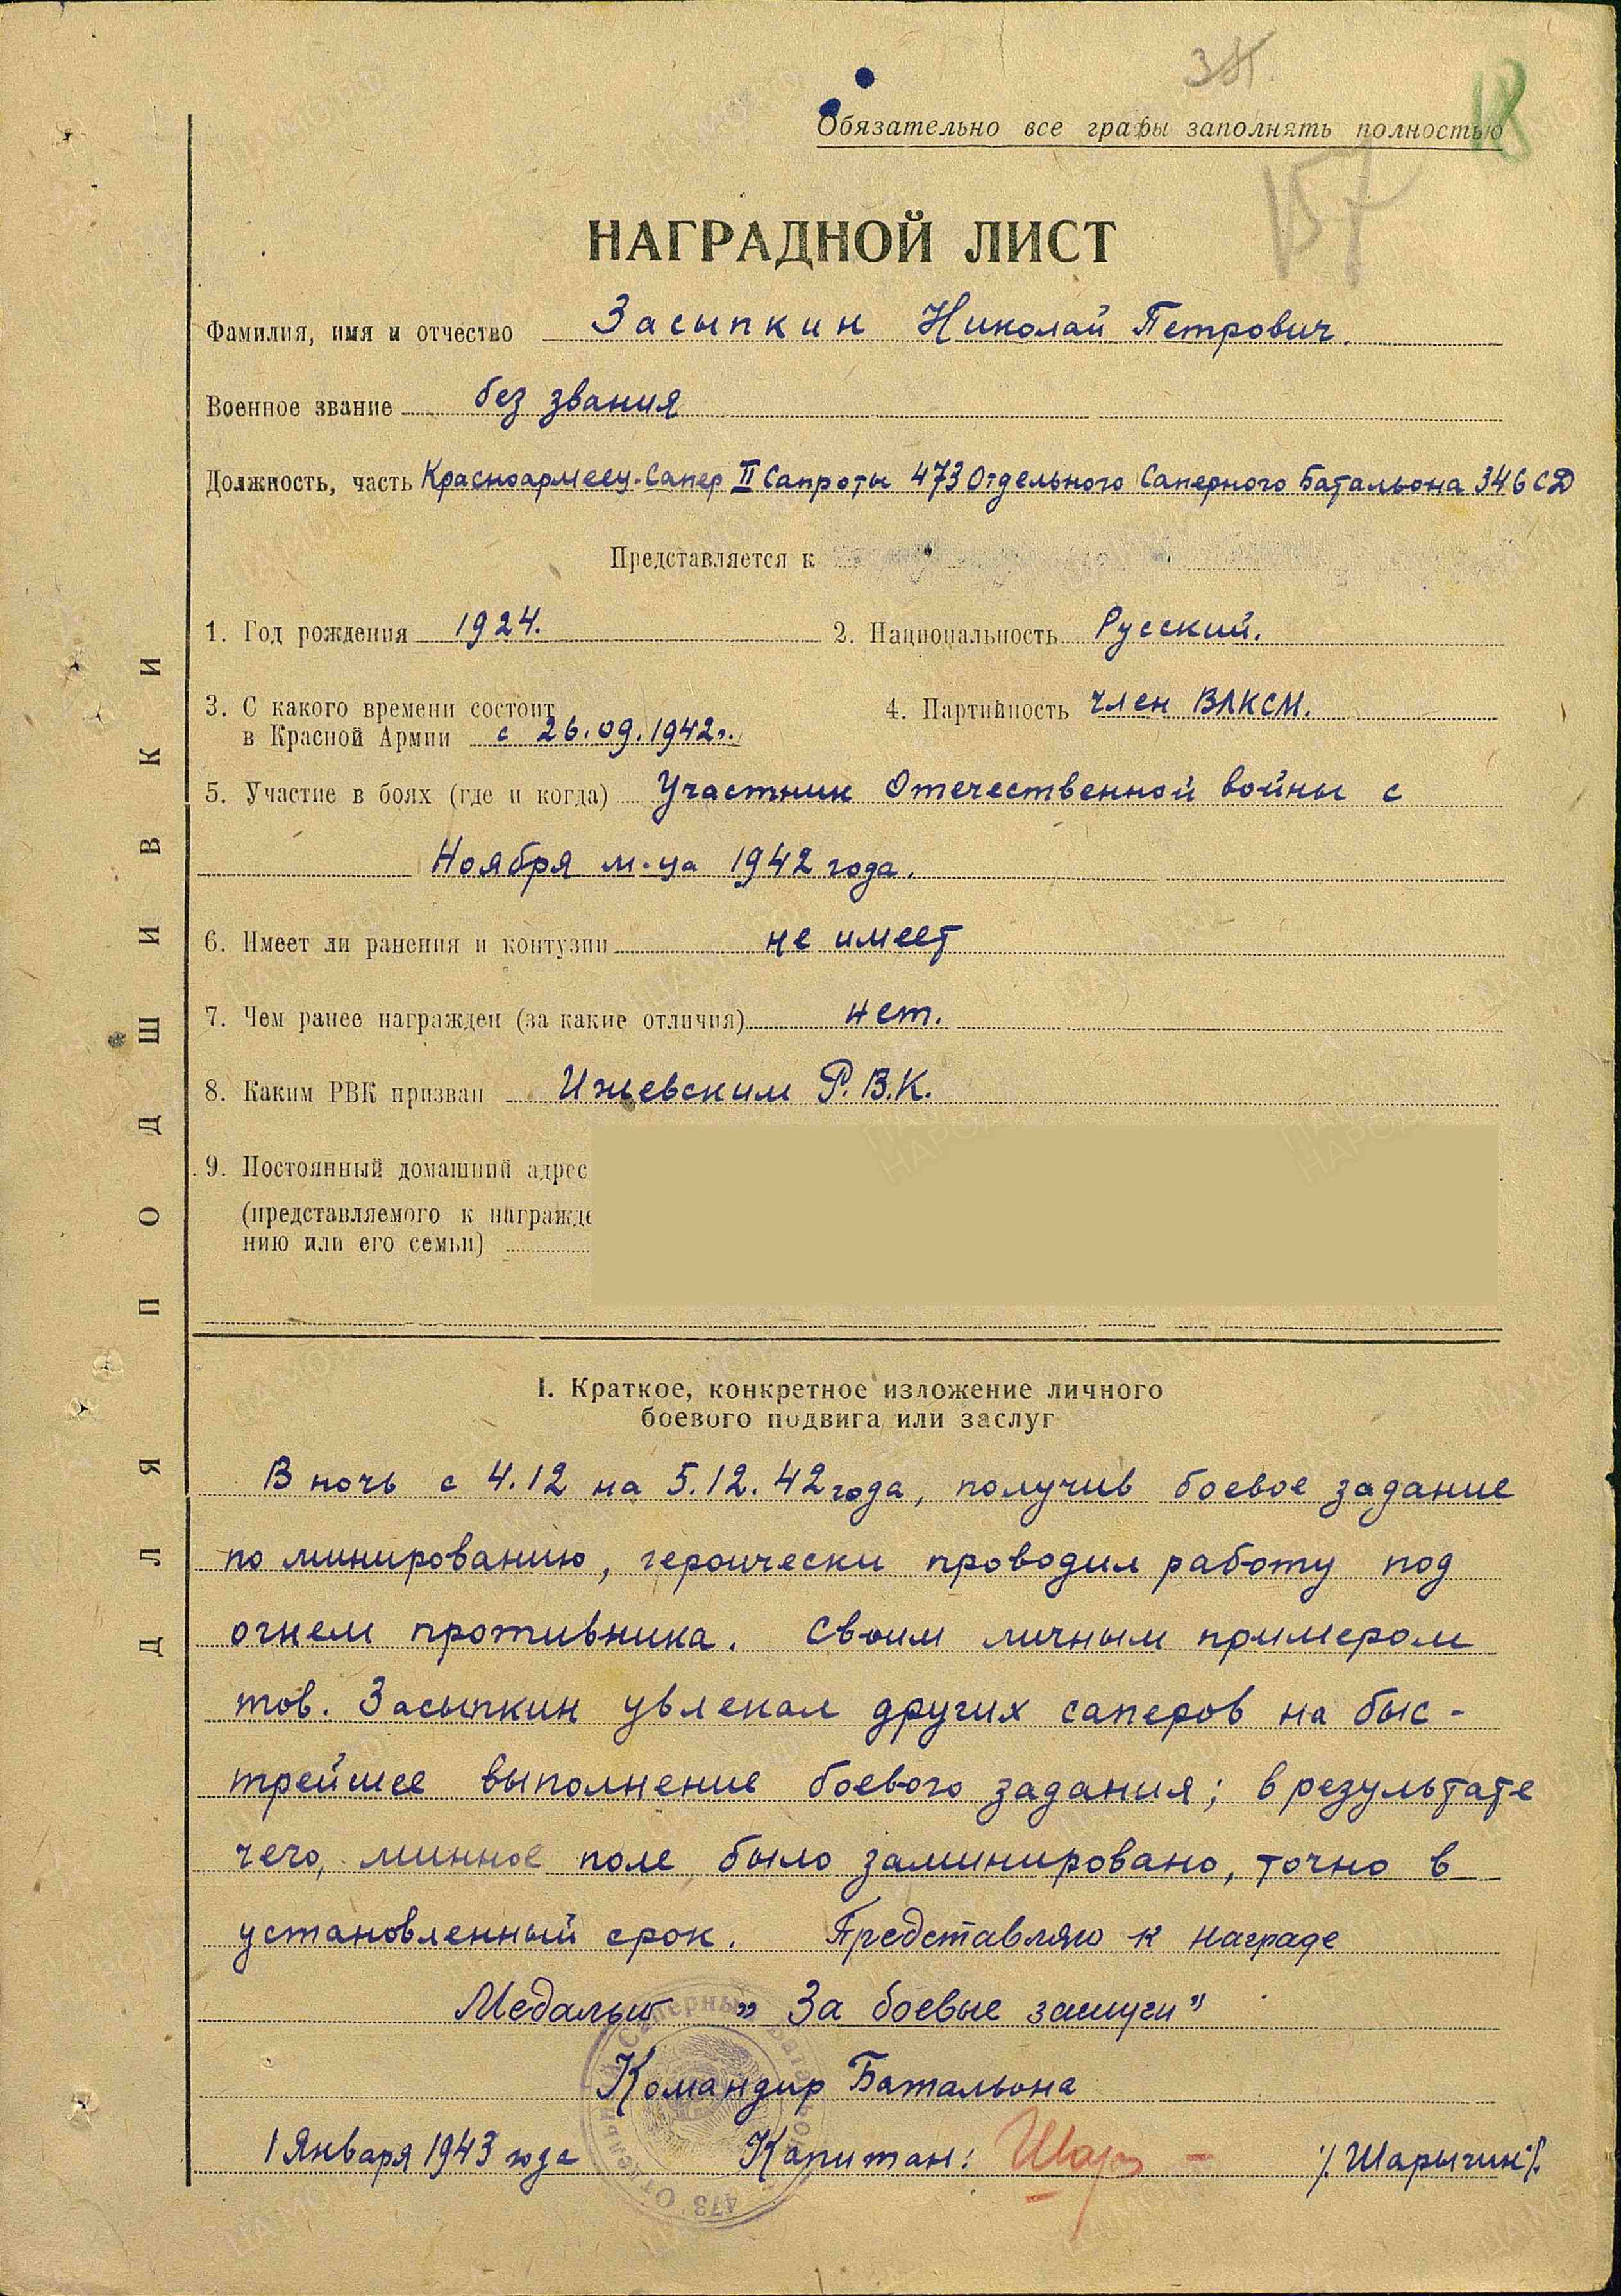 ЗК.
18
Обязательно все графы заполнять полностью
157
НАГРАДНОЙ ЛИСТ
Фамилия, имя и отчество Засыпкин Николай Петрович.
Военное звание без звания
Должность, часть Красноармеец-Сапер II Сапроты 473 Отдельного Саперного Батальона 346 СД
Представляется к
1. Год рождения 1924. 2. Национальность Русский.
3. С какого времени состоит
в Красной Армии с 26.09.1942г. 4. Партийность член ВЛКСМ.
5. Участие в боях (где и когда) Участник Отечественной войны с
Ноября м-ца 1942 года.
6. Имеет ли ранения и контузии не имеет
7. Чем ранее награжден (за какие отличия) нет.
8. Каким РВК призван Ижевским Р.В.К.
9. Постоянный домашний адрес
(представляемого к награжде
нию или его семьи)
I. Краткое, конкретное изложение личного
боевого подвига или заслуг
В ночь с 4.12 на 5.12.42 года, получив боевое задание
по минированию, героически проводил работу под
огнем противника. Своим личным примером
тов. Засыпкин увлекал других саперов на быс-
трейшее выполнение боевого задания; в результате
чего, минное поле было заминировано, точно в
установленный срок. Представляю к награде
Медалью "За боевые заслуги"
Командир Батальона
1 Января 1943 года Капитан: /Шарыгин/.
ДЛЯ ПОДШИВКИ
473 Отдельный Саперный Батальон